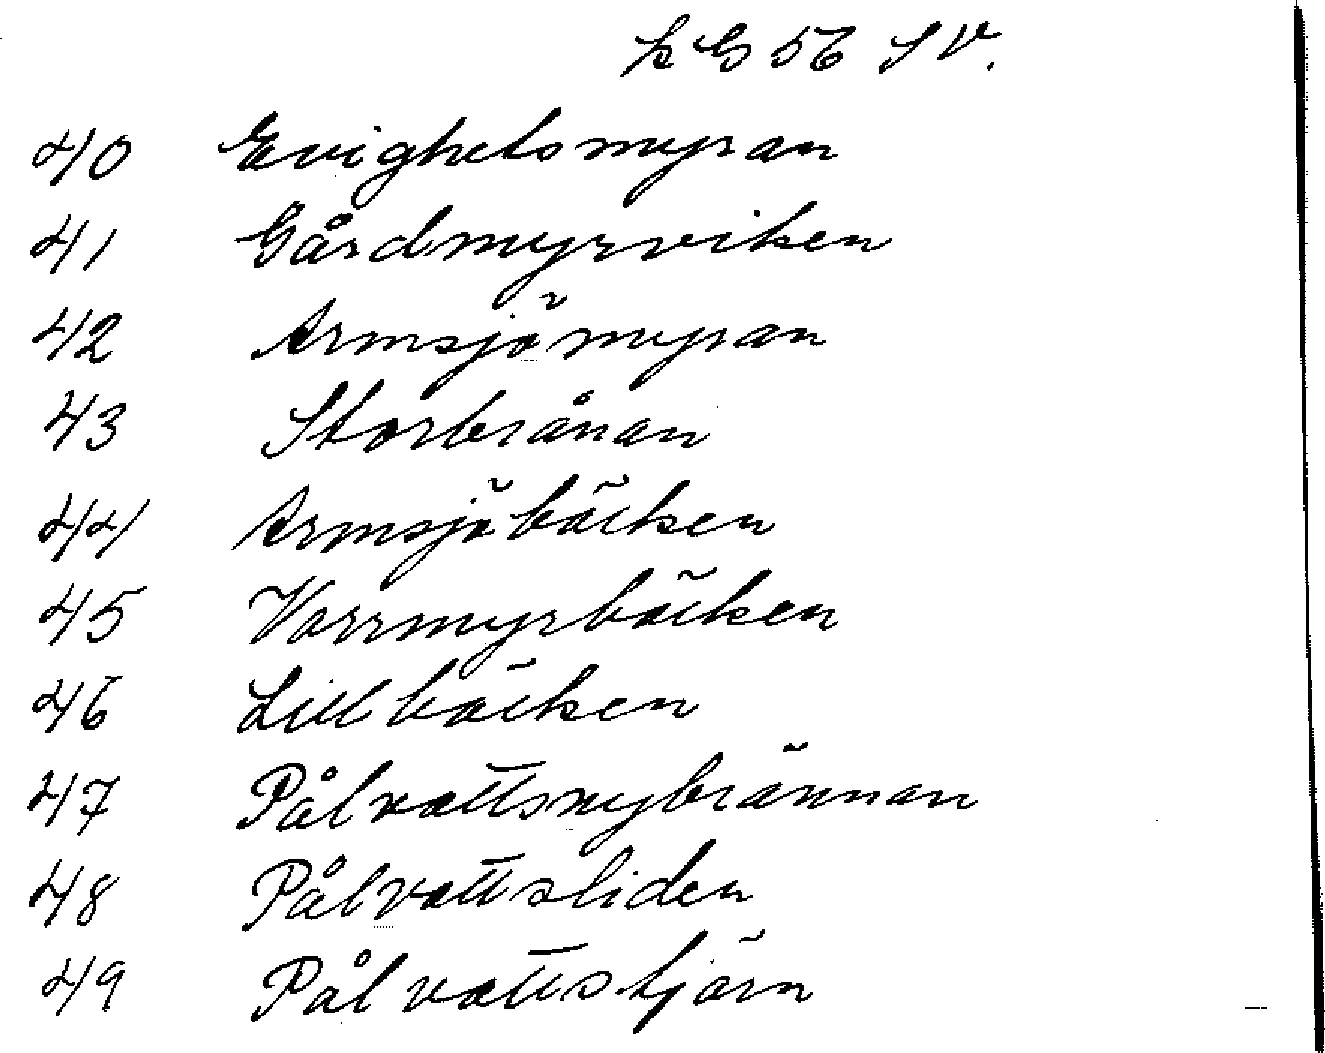 kG 56 SV.
40 Evighetsmyran
41 Gårdmyrviken
42 Armsjömyran
43 Storbrånan
44 Armsjöbäcken
45 Vorrmyrbäcken
46 Lillbäcken
47 Pålvattsnybrännan
48 Pålvattsliden
49 Pålvattstjärn